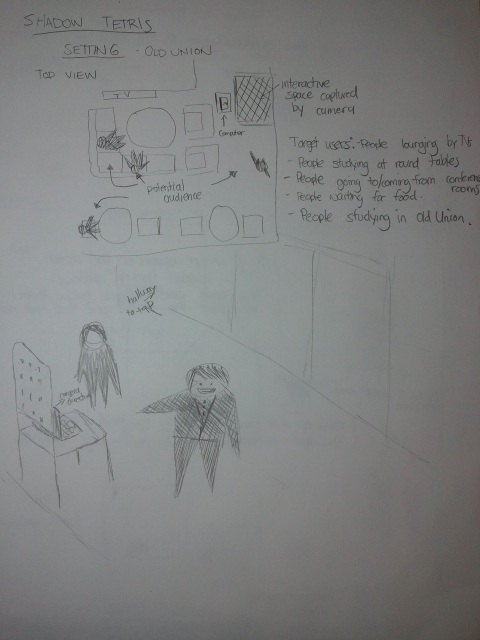 SHADOW TETRIS
SETTING - OLD UNION
TOP VIEW
TV
interactive
space captured
by camera
Computer
potential
audience
Target users: - People lounging by TVs
- People studying at round tables
- People going to/coming from conference
rooms
- People waiting for food.
- People studying in Old Union.
hallway